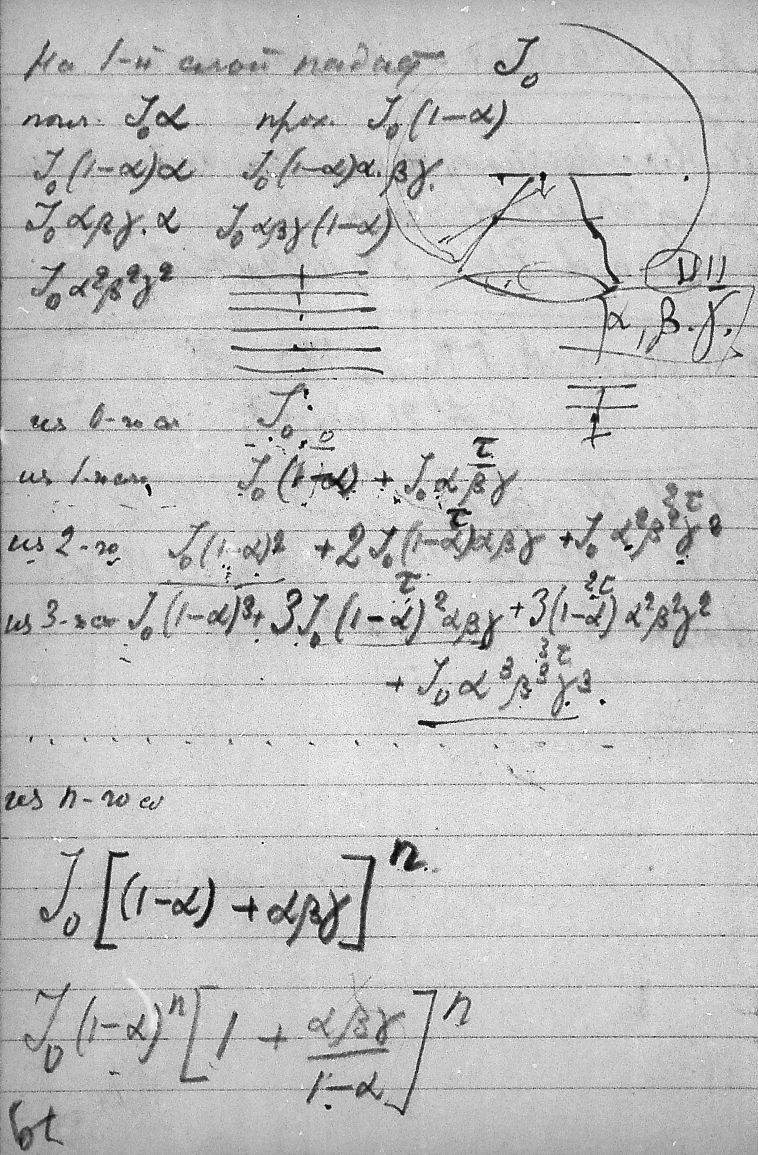 На 1-й слой падает J₀
погл. J₀α прох. J₀(1-α)
J₀(1-α)α J₀(1-α)α·βγ.
J₀αβγ.α J₀αβγ(1-α)
J₀α²β²γ²
α, β.γ.
из 0-го сл J₀
из 1-го сл. J₀(1-α) + J₀αβγ τ
из 2-го J₀(1-α)² + 2J₀(1-α)αβγ τ + J₀α²β²γ² 2τ
из 3-го сл J₀(1-α)³ + 3J₀(1-α)²αβγ τ + 3(1-α)α²β²γ² 2τ
+ J₀α³β³γ³. 3τ
из n-го сл
J₀[(1-α) + αβγ]ⁿ
J₀(1-α)ⁿ[1 + αβγ/(1-α)]ⁿ